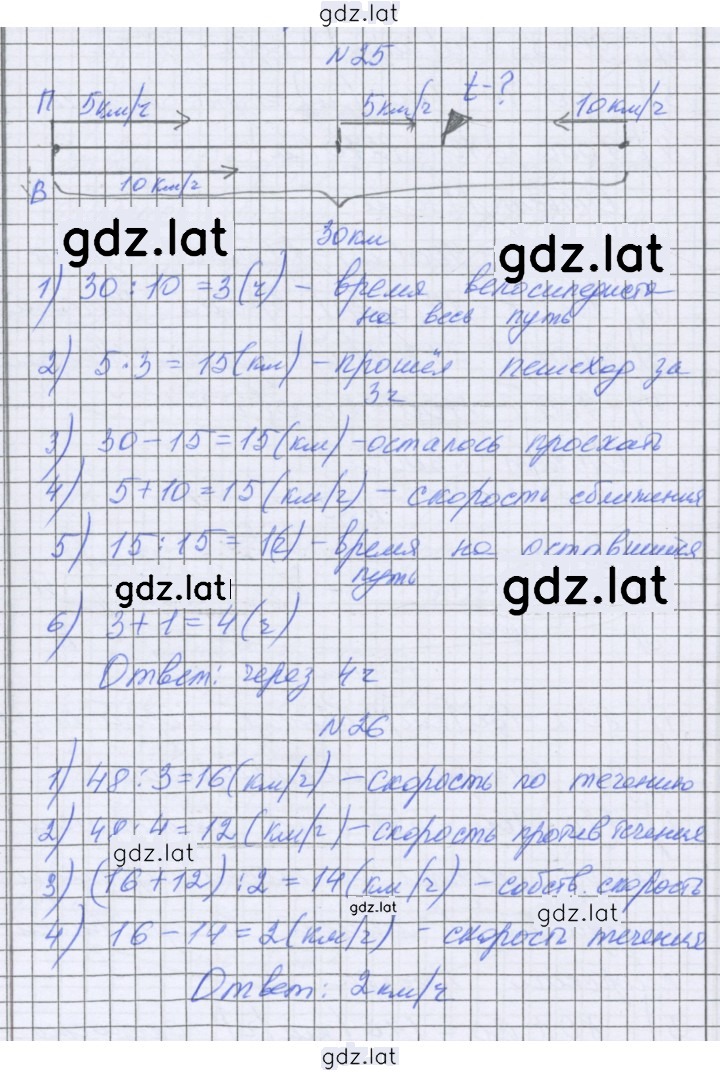 gdz.lat
№25
П 5км/ч 5км/ч t-? 10км/ч
В 10км/ч
30км
gdz.lat gdz.lat
1) 30 : 10 = 3(ч) – время велосипедиста
на весь путь
2) 5·3 = 15(км) – прошёл пешеход за
3ч
3) 30 – 15 = 15(км) – осталось проехать
4) 5 + 10 = 15(км/ч) – скорость сближения
5) 15 : 15 = 1(ч) – время на оставшийся
путь
gdz.lat gdz.lat
6) 3 + 1 = 4(ч)
Ответ: через 4ч
№26
1) 48 : 3 = 16(км/ч) – скорость по течению
2) 48 : 4 = 12(км/ч) – скорость против течения
gdz.lat
3) (16 + 12) : 2 = 14(км/ч) – собств. скорость
gdz.lat gdz.lat
4) 16 – 14 = 2(км/ч) – скорость течения
Ответ: 2км/ч
gdz.lat